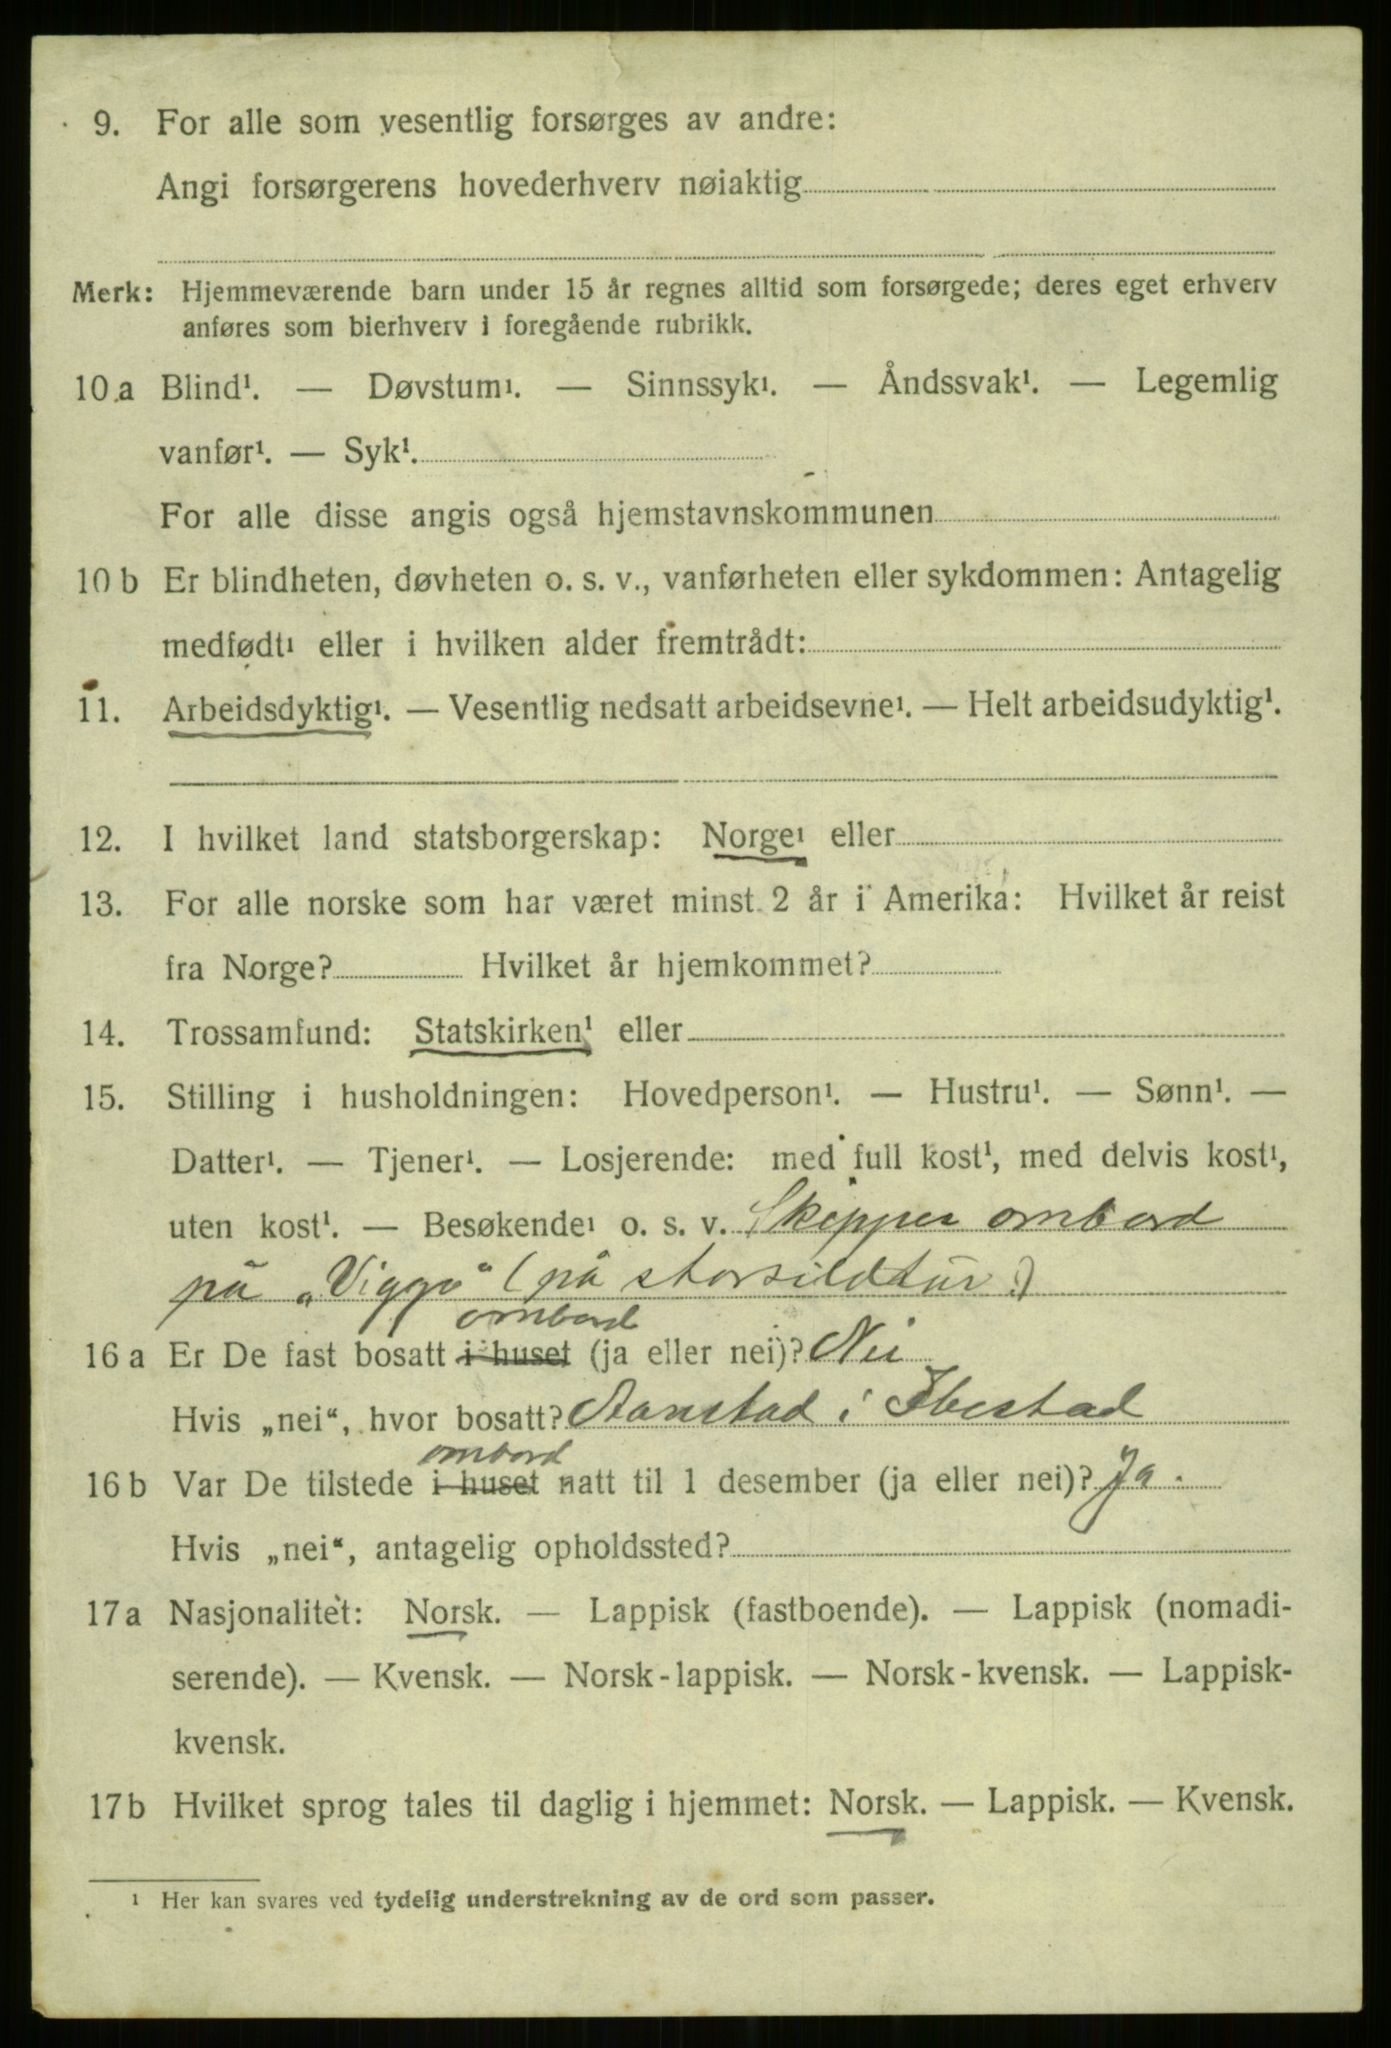 9. For alle som vesentlig forsørges av andre:
Angi forsørgerens hovederhverv nøiaktig
Merk: Hjemmeværende barn under 15 år regnes alltid som forsørgede; deres eget erhverv
anføres som bierhverv i foregående rubrikk.
10 a Blind¹. — Døvstum¹. — Sinnssyk¹. — Åndssvak¹. — Legemlig
vanfør¹. — Syk¹.
For alle disse angis også hjemstavnskommunen
10 b Er blindheten, døvheten o. s. v., vanførheten eller sykdommen: Antagelig
medfødt¹ eller i hvilken alder fremtrådt:
11. Arbeidsdyktig¹. — Vesentlig nedsatt arbeidsevne¹. — Helt arbeidsudyktig¹.
12. I hvilket land statsborgerskap: Norge¹ eller
13. For alle norske som har været minst 2 år i Amerika: Hvilket år reist
fra Norge? Hvilket år hjemkommet?
14. Trossamfund: Statskirken¹ eller
15. Stilling i husholdningen: Hovedperson¹. — Hustru¹. — Sønn¹. —
Datter¹. — Tjener¹. — Losjerende: med full kost¹, med delvis kost¹,
uten kost¹. — Besøkende¹ o. s. v. Skipper ombord
på „Viggo" (på storsildtur.)
ombord
16 a Er De fast bosatt i huset (ja eller nei)? Nei
Hvis „nei“, hvor bosatt? Aanstad i Ibestad
ombord
16 b Var De tilstede i huset natt til 1 desember (ja eller nei)? Ja.
Hvis „nei“, antagelig opholdssted?
17 a Nasjonalitet: Norsk. — Lappisk (fastboende). — Lappisk (nomadi-
serende). — Kvensk. — Norsk-lappisk. — Norsk-kvensk. — Lappisk-
kvensk.
17 b Hvilket sprog tales til daglig i hjemmet: Norsk. — Lappisk. — Kvensk.
¹ Her kan svares ved tydelig understrekning av de ord som passer.